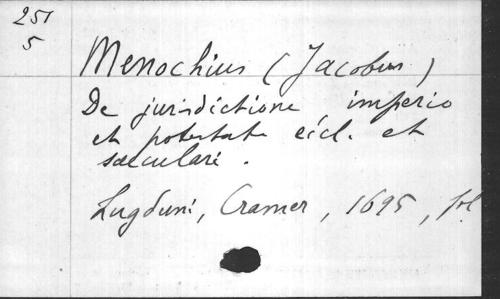 251
5
Menochius (Jacobus)
De jurisdictione imperio
et potestate eccl. et
sæculari.
Lugduni, Cramer, 1695, fol